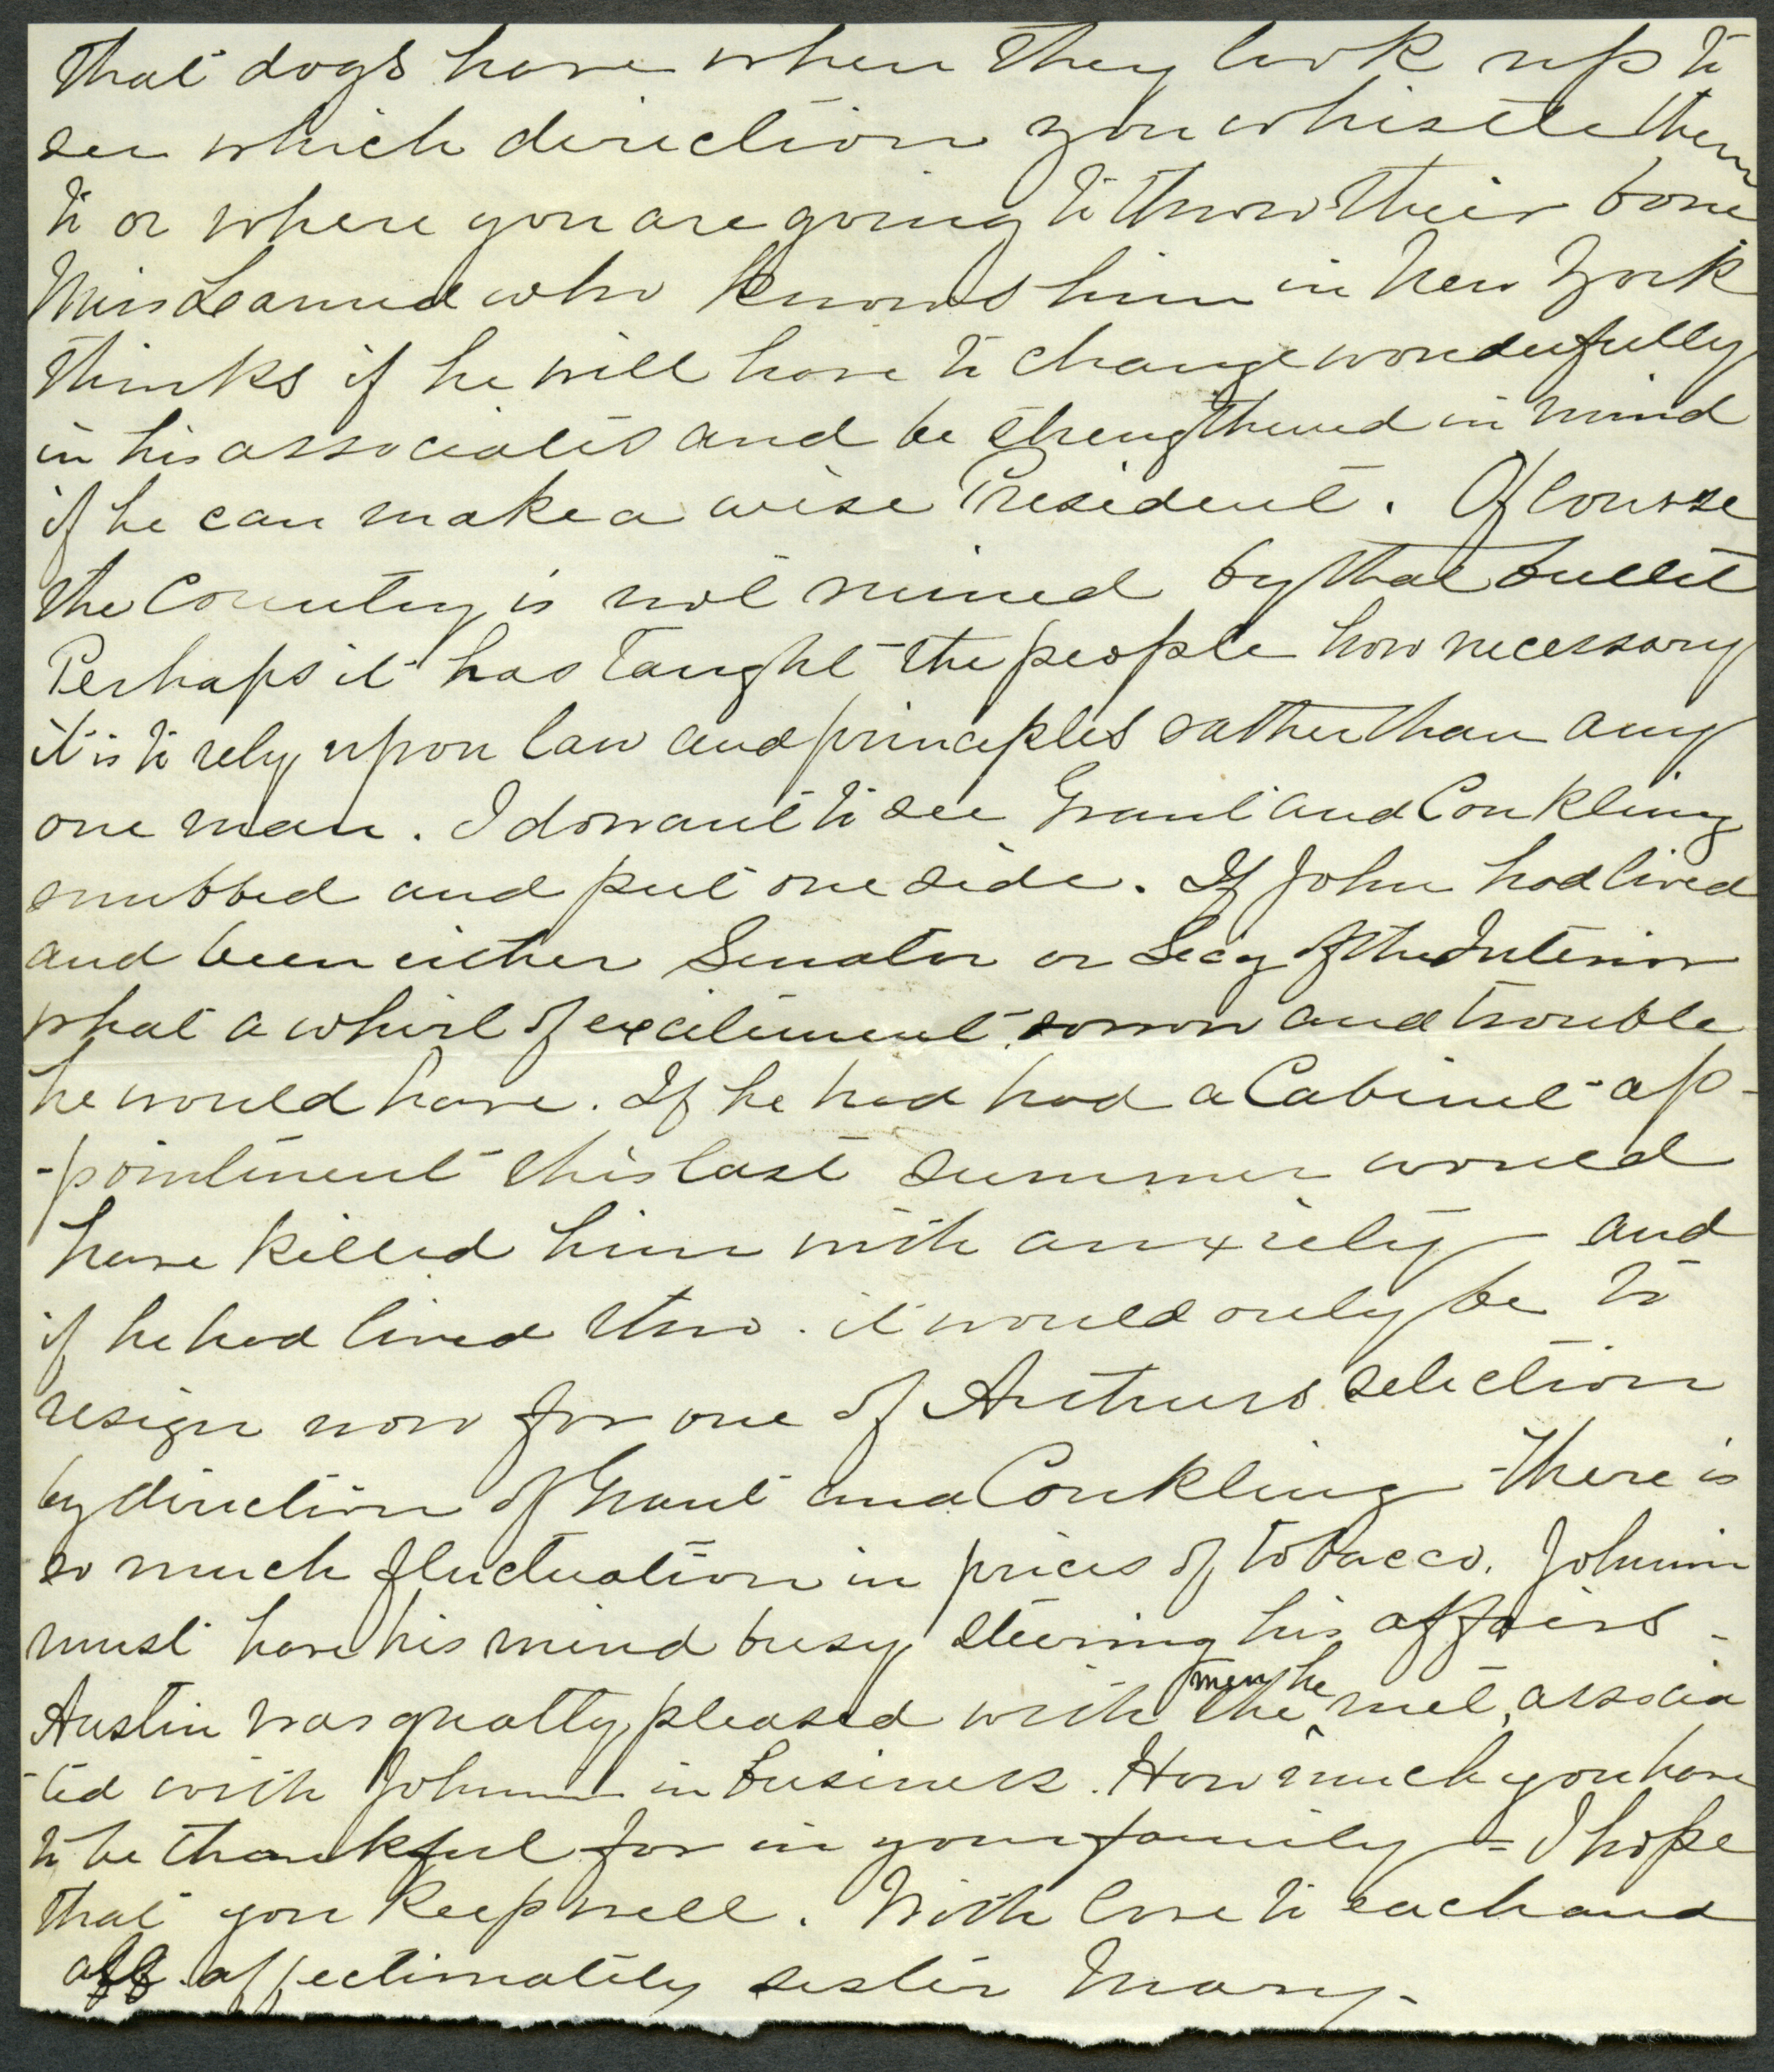 that dogs have when they look up to
see which direction you whistle them
to or where you are going to throw their bone
Miss Learned who knows him in New York
thinks if he will have to change wonderfully
in his associates and be strengthened in mind
if he can make a wise President. Of course
the Country is not ruined by that bullet
Perhaps it has taught the people how necessary
it is to rely upon law and principles rather than any
one man. I do want to see Grant and Conkling
snubbed and put one side. If John had lived
and been either Senator or Secy of the Interior
what a whirl of excitement, sorrow and trouble
he would have. If he had had a Cabinet ap-
-pointment this last summer would
have killed him with anxiety - and
if he had lived thro. it would only be to
resign now for one of Arthurs selection
by direction of Grant and Conkling - There is
so much fluctuation in prices of tobacco. Johnnie
must have his mind busy steering his affairs -
Austin was greatly pleased with the men he met, associa
-ted with Johnnie in business. How much you have
to be thankful for in your family = I hope
that you keep well. With love to each and
all. affectionately sister Mary.